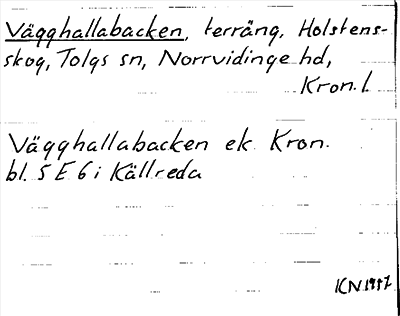 Vägghallabacken, terräng, Holstens-
skog, Tolgs sn, Norrvidinge hd,
Kron. l.
Vägghallabacken ek. Kron.
bl. 5 E 6 i Källreda